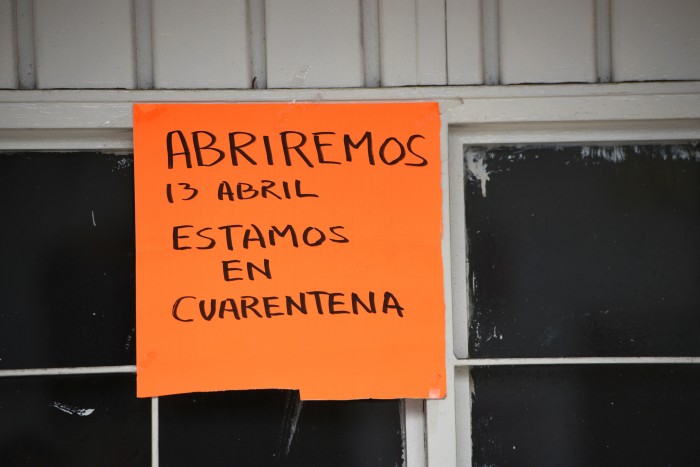 ABRIREMOS
13 ABRIL
ESTAMOS
EN
CUARENTENA